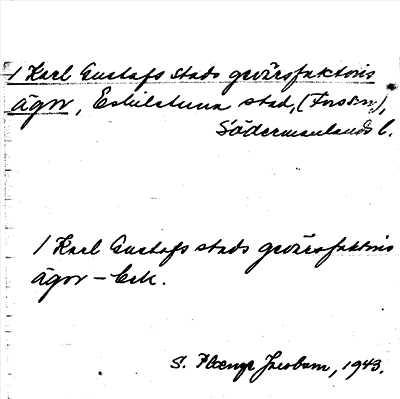 1 Karl Gustafs stads gevärsfaktoris
ägor, Eskilstuna stad, (Forsön),
Södermanlands l.
1 Karl Gustafs stads gevärsfaktoris
ägor – Eck.
S. Jacobson, 1943.